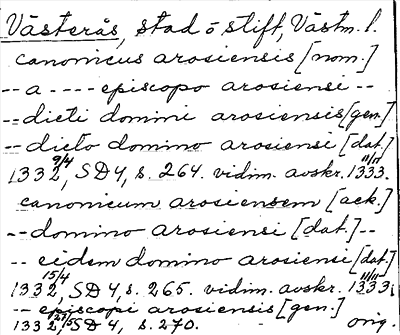 Västerås, stad o stift, Västm. l.
canonicus arosiensis [nom.]
-- a ---- episcopo arosiensi --
-- dicti domini arosiensis [gen.]
-- dicto domino arosiensi [dat.]
1332 9/4, SD 4, s. 264. vidim. avskr. 1333 11/11.
canonicum arosiensem [ack.]
-- domino arosiensi [dat.] --
-- eidem domino arosiensi [dat.]
1332 15/4, SD 4, s. 265. vidim. avskr. 1333 11/11.
-- episcopi arosiensis [gen.]
1332, SD 4, s. 270. orig.